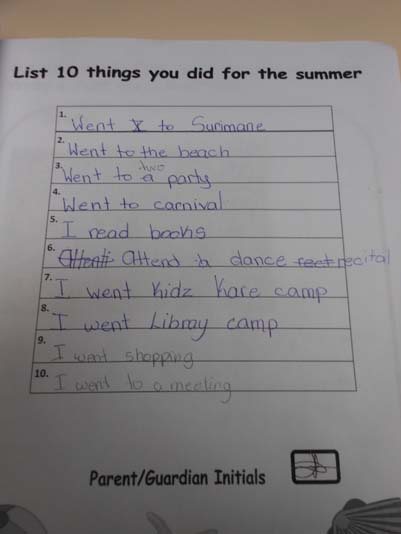 List 10 things you did for the summer
1. Went to Surimane
2. Went to the beach
3. Went to two party
4. Went to carnival
5. I read books
6. Attend a dance recital
7. I went Kidz Kare camp
8. I went Libray camp
9. I went shopping
10. I went to a meeting
Parent/Guardian Initials